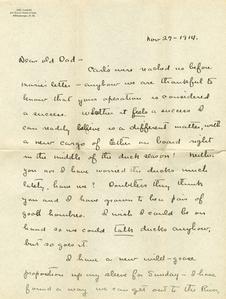 Nov 29-1914.
Dear old Dad-
Carl's wire reached us before
Marie's letter - anyhow we are thankful to
know that your operation is considered
a success. Whether it feels a success I
can readily believe is a different matter, with
a new cargo of Ether on board right
in the middle of the duck season! Neither
you nor I have worried the ducks much
lately, have we? Doubtless they think
you and I have grown to be a pair of
good hombres. I wish I could be on
hand so we could talk ducks anyhow,
but so goes it.
I have a new wild-goose
proposition up my sleeve for Sunday - I have
found a way we can get out to the River,